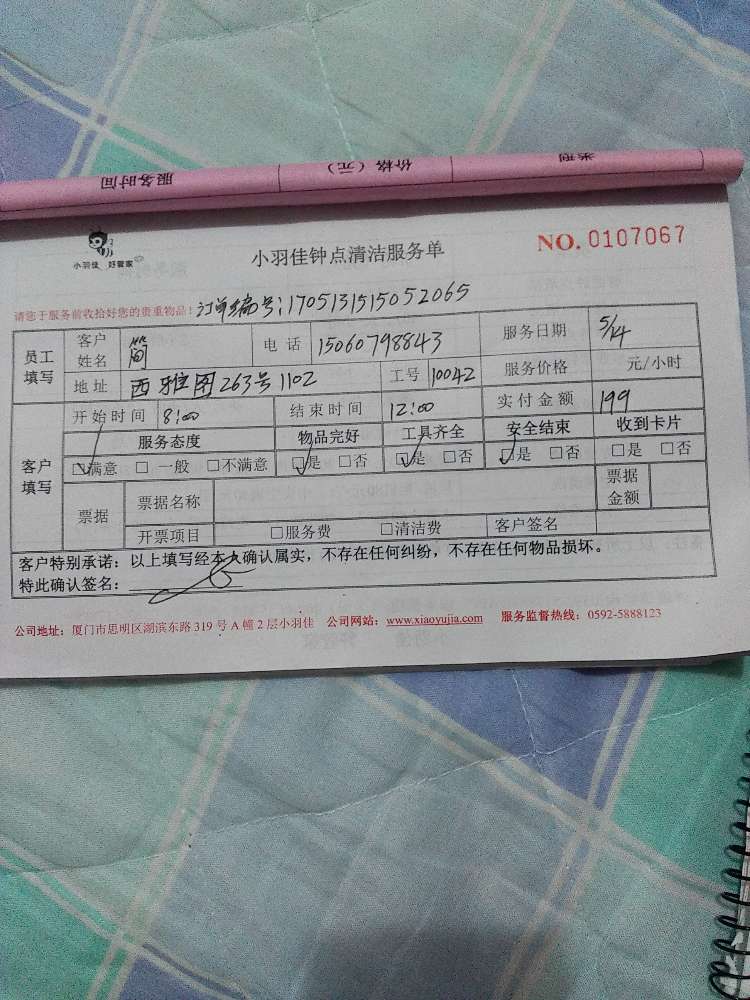 服务时间 价格（元） 类型
小羽佳 好管家
小羽佳钟点清洁服务单
NO. 0107067
请您于服务前收拾好您的贵重物品！ 订单编号：1705131515052065
员工填写 客户姓名 简 电话 15060798843 服务日期 5/14
地址 西雅图263号1102 工号 10042 服务价格 元/小时
客户填写 开始时间 8:00 结束时间 12:00 实付金额 199
服务态度 物品完好 工具齐全 安全结束 收到卡片
☑满意 □ 一般 □不满意 ☑是 □否 ☑是 □否 ☑是 □否 □是 □否
票据 票据名称 票据金额
开票项目 □服务费 □清洁费 客户签名
客户特别承诺：以上填写经本人确认属实，不存在任何纠纷，不存在任何物品损坏。
特此确认签名：
公司地址：厦门市思明区湖滨东路 319 号 A 幢 2 层小羽佳 公司网站：www.xiaoyujia.com 服务监督热线：0592-5888123